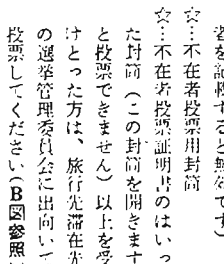 者を記載すると無効です)
☆…不在者投票用封筒
☆…不在者投票証明書のはいっ
た封筒(この封筒を開きます
と投票できません)以上を受
けとった方は、旅行先滞在先
の選挙管理委員会に出向いて
投票してください(B図参照